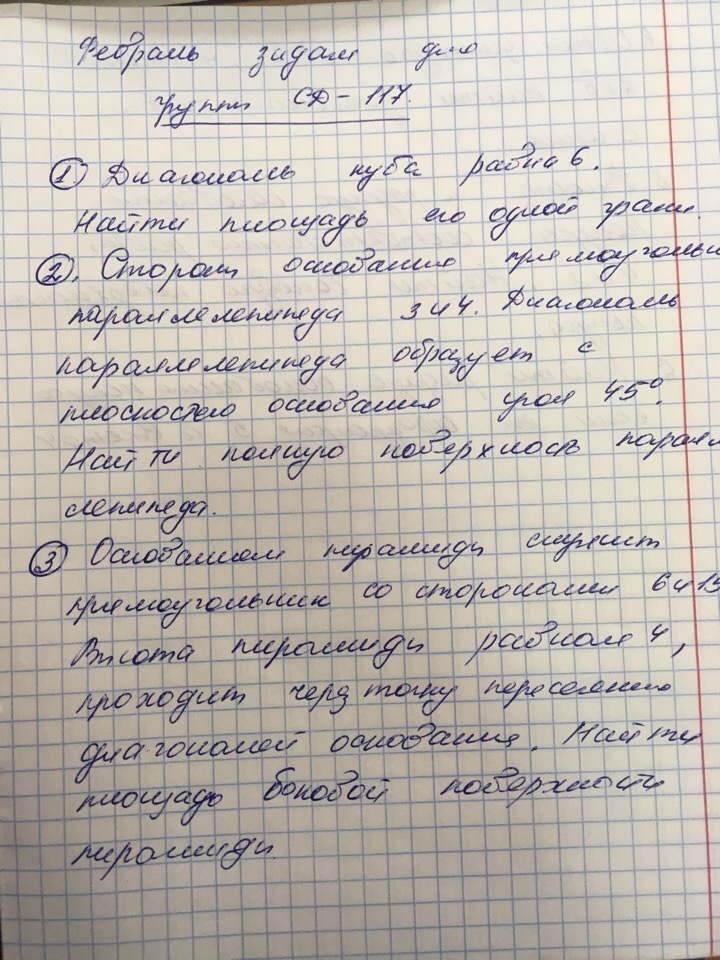 Февраль задам для
группы СД-117.
① Диагональ куба равна 6.
Найти площадь его одной грани.
②. Стороны основания прямоуголь
параллелепипеда 3 и 4. Диагональ
параллелепипеда образует с
плоскостью основания угол 45°.
Найти полную поверхность паралле
лепипеда.
③ Основанием пирамиды служит
прямоугольник со сторонами 6 и 15
Высота пирамиды равная 4,
проходит через точку пересечения
диагоналей основания. Найти
площадь боковой поверхности
пирамиды.